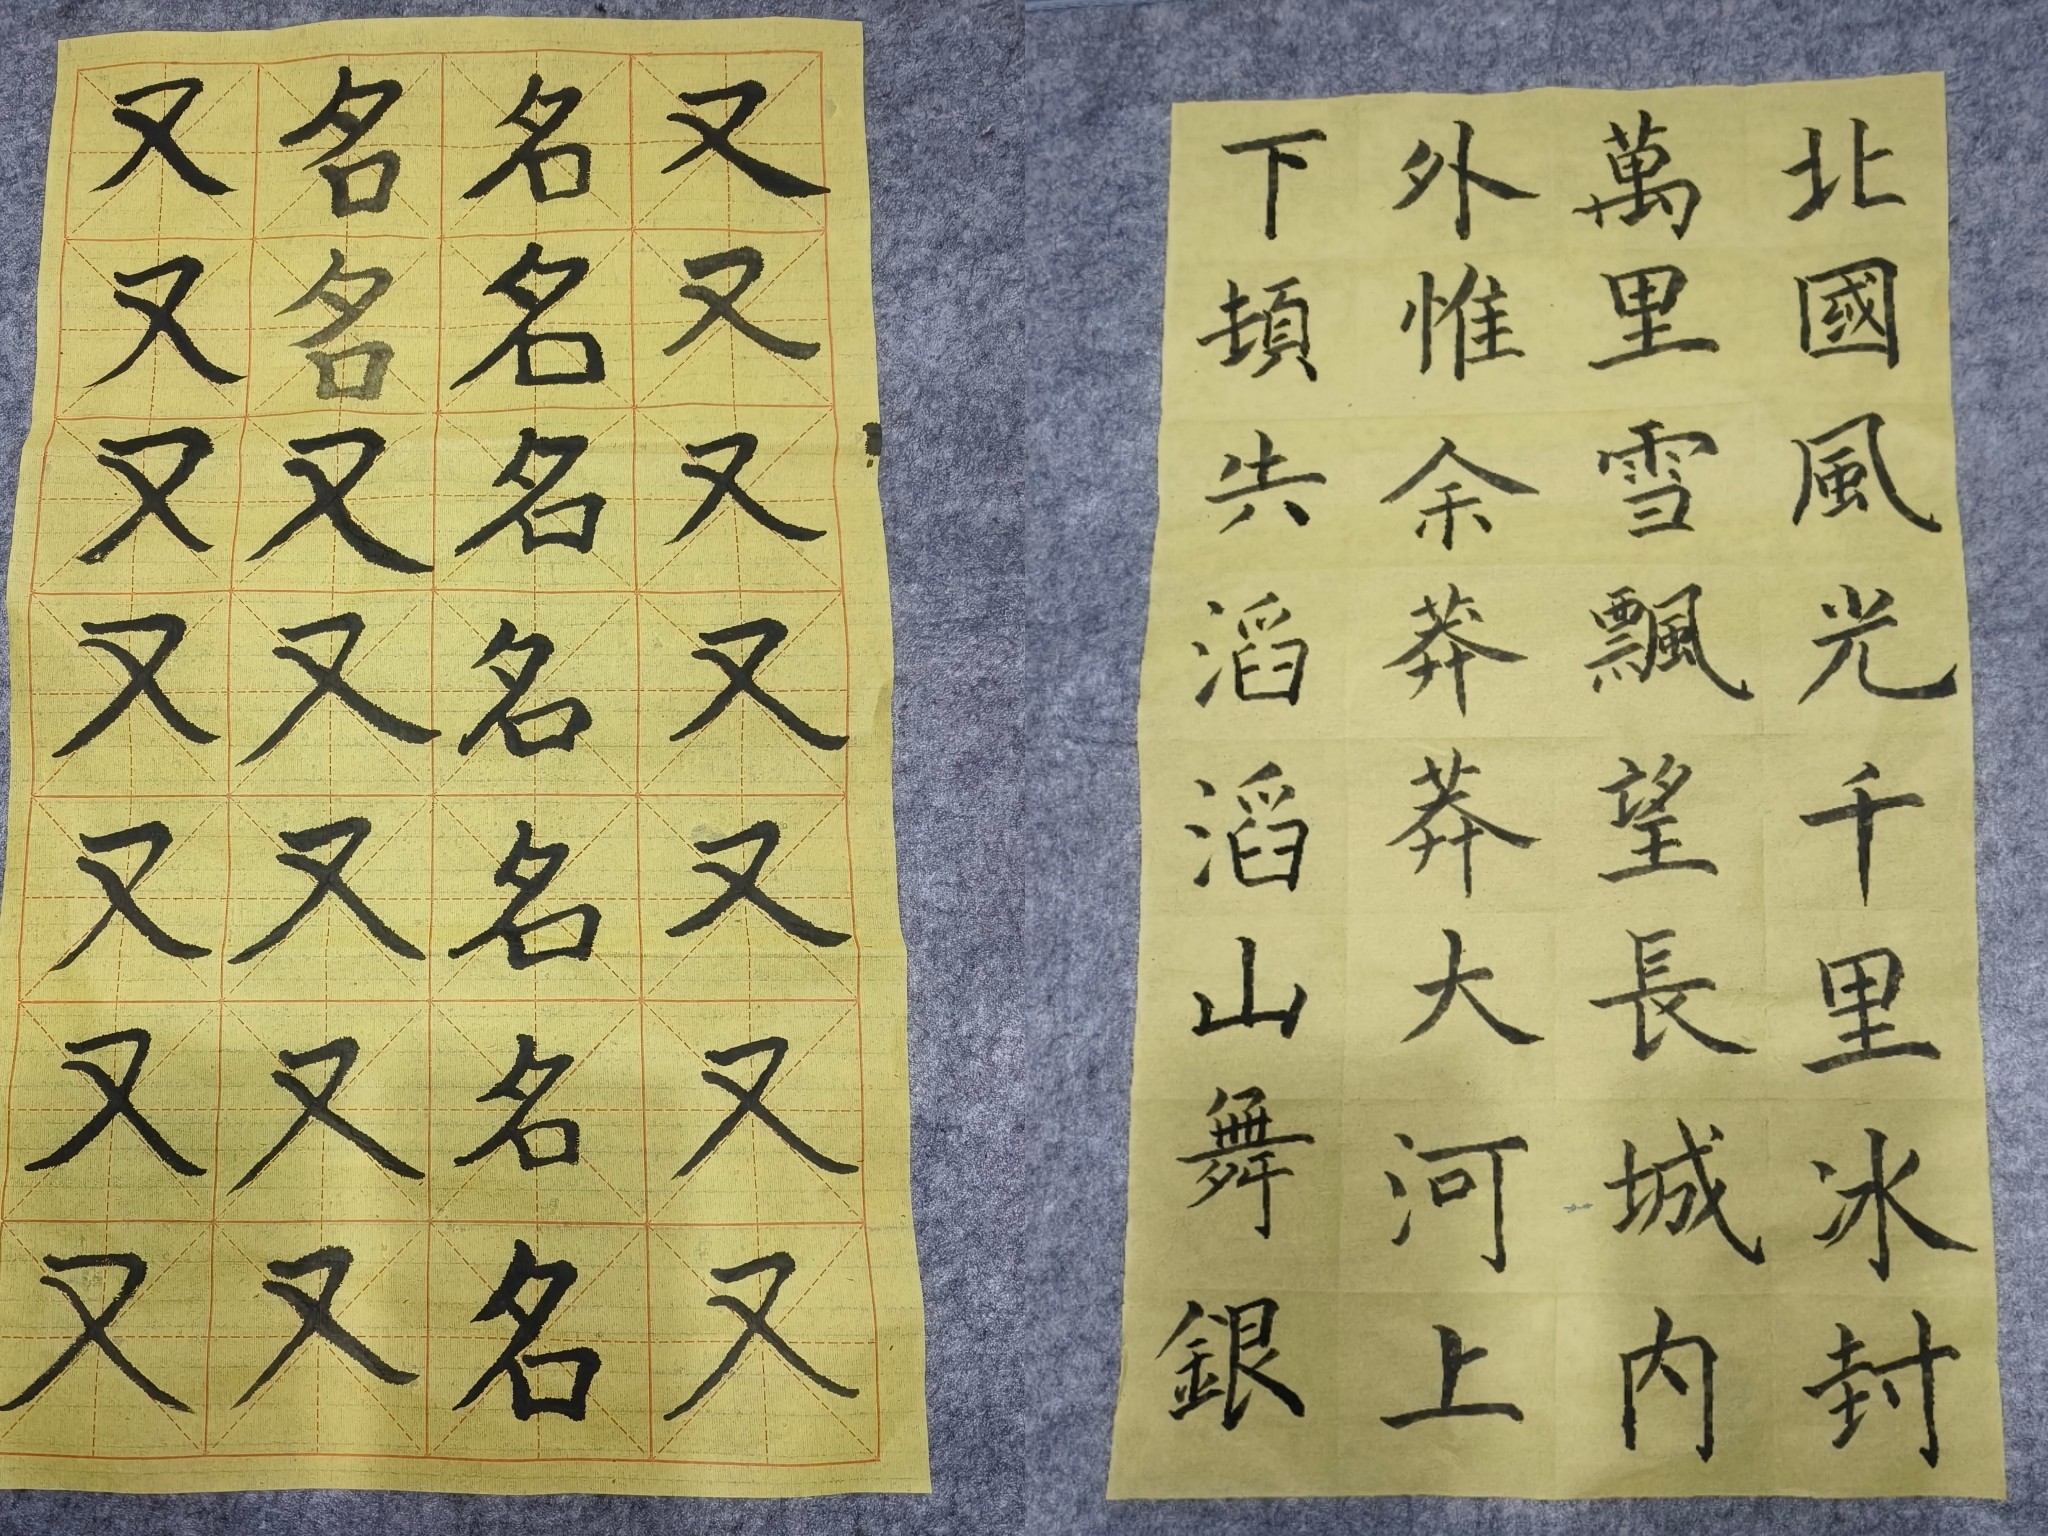 又又又又又又又
名名名名名名名
名名又又又又又
又又又又又又又
北國風光千里冰封
萬里雪飄望長城内
外惟余莽莽大河上
下頓失滔滔山舞銀